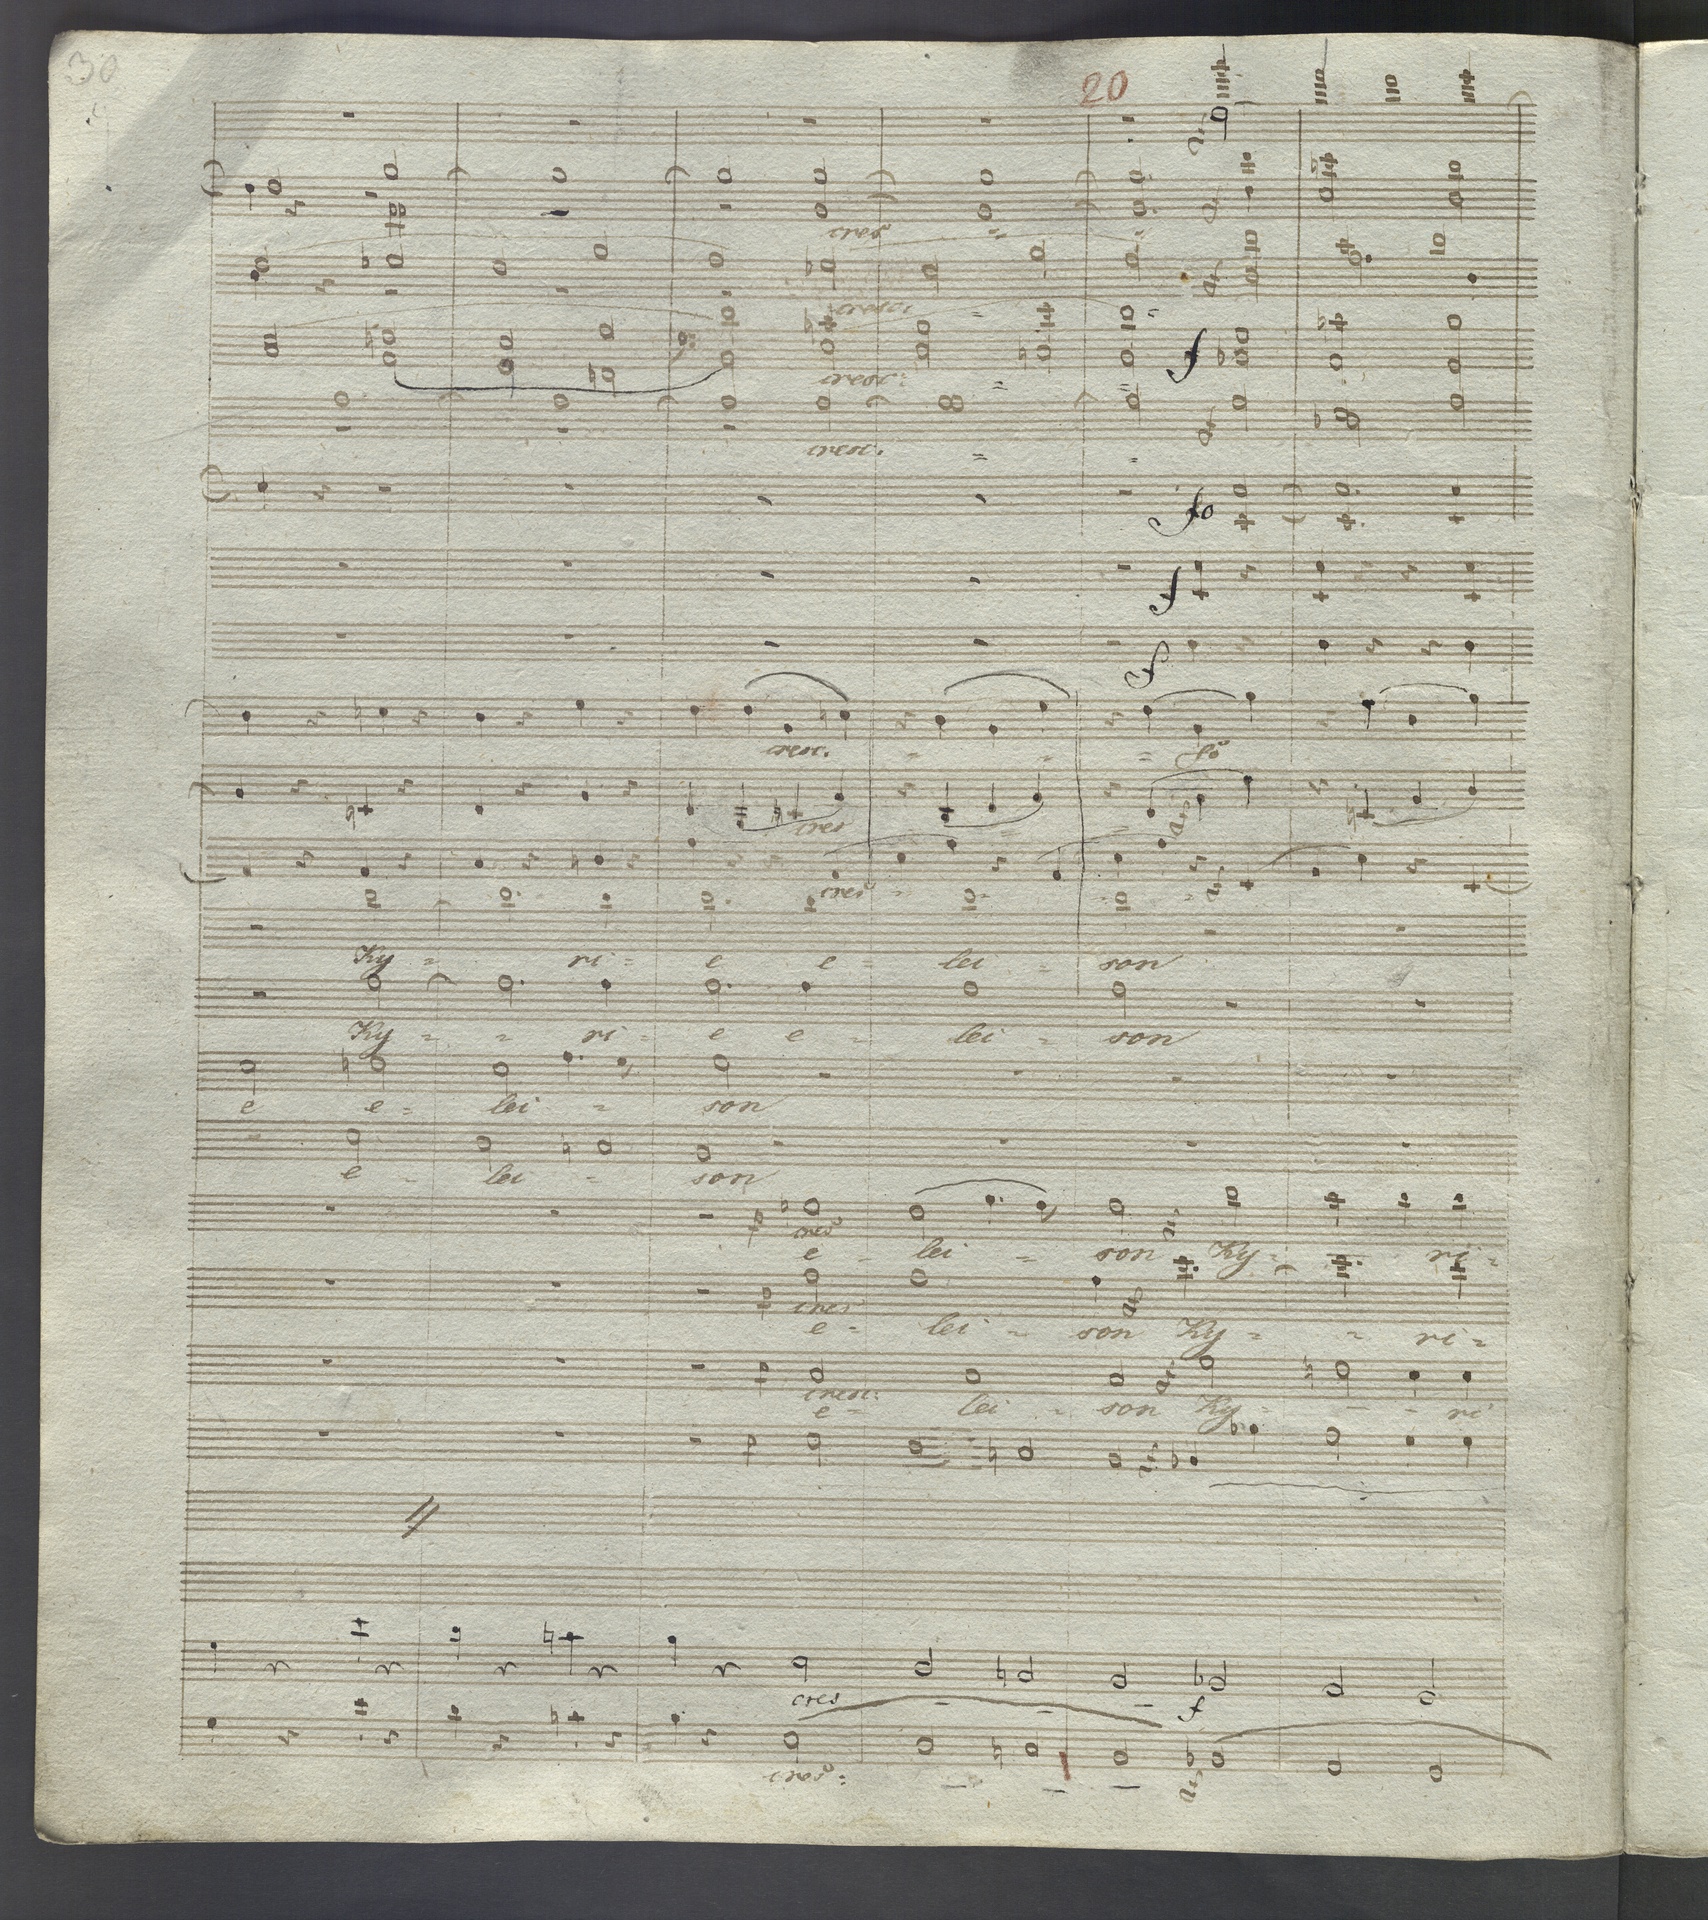 30
20
cresc
cresc:
f
cresc:
f
cresc:
fo
f
f
cresc:
fo
cres
cres
Ky = ri = e e = lei = son
Ky = = ri = e e = lei = son
e e = lei = son
e = lei = son
p cres
e = lei = son Ky = = ri =
p cres
e = lei = son Ky = = ri =
p cresc:
e = lei = son Ky = - - ri
p
cres
f
cres: